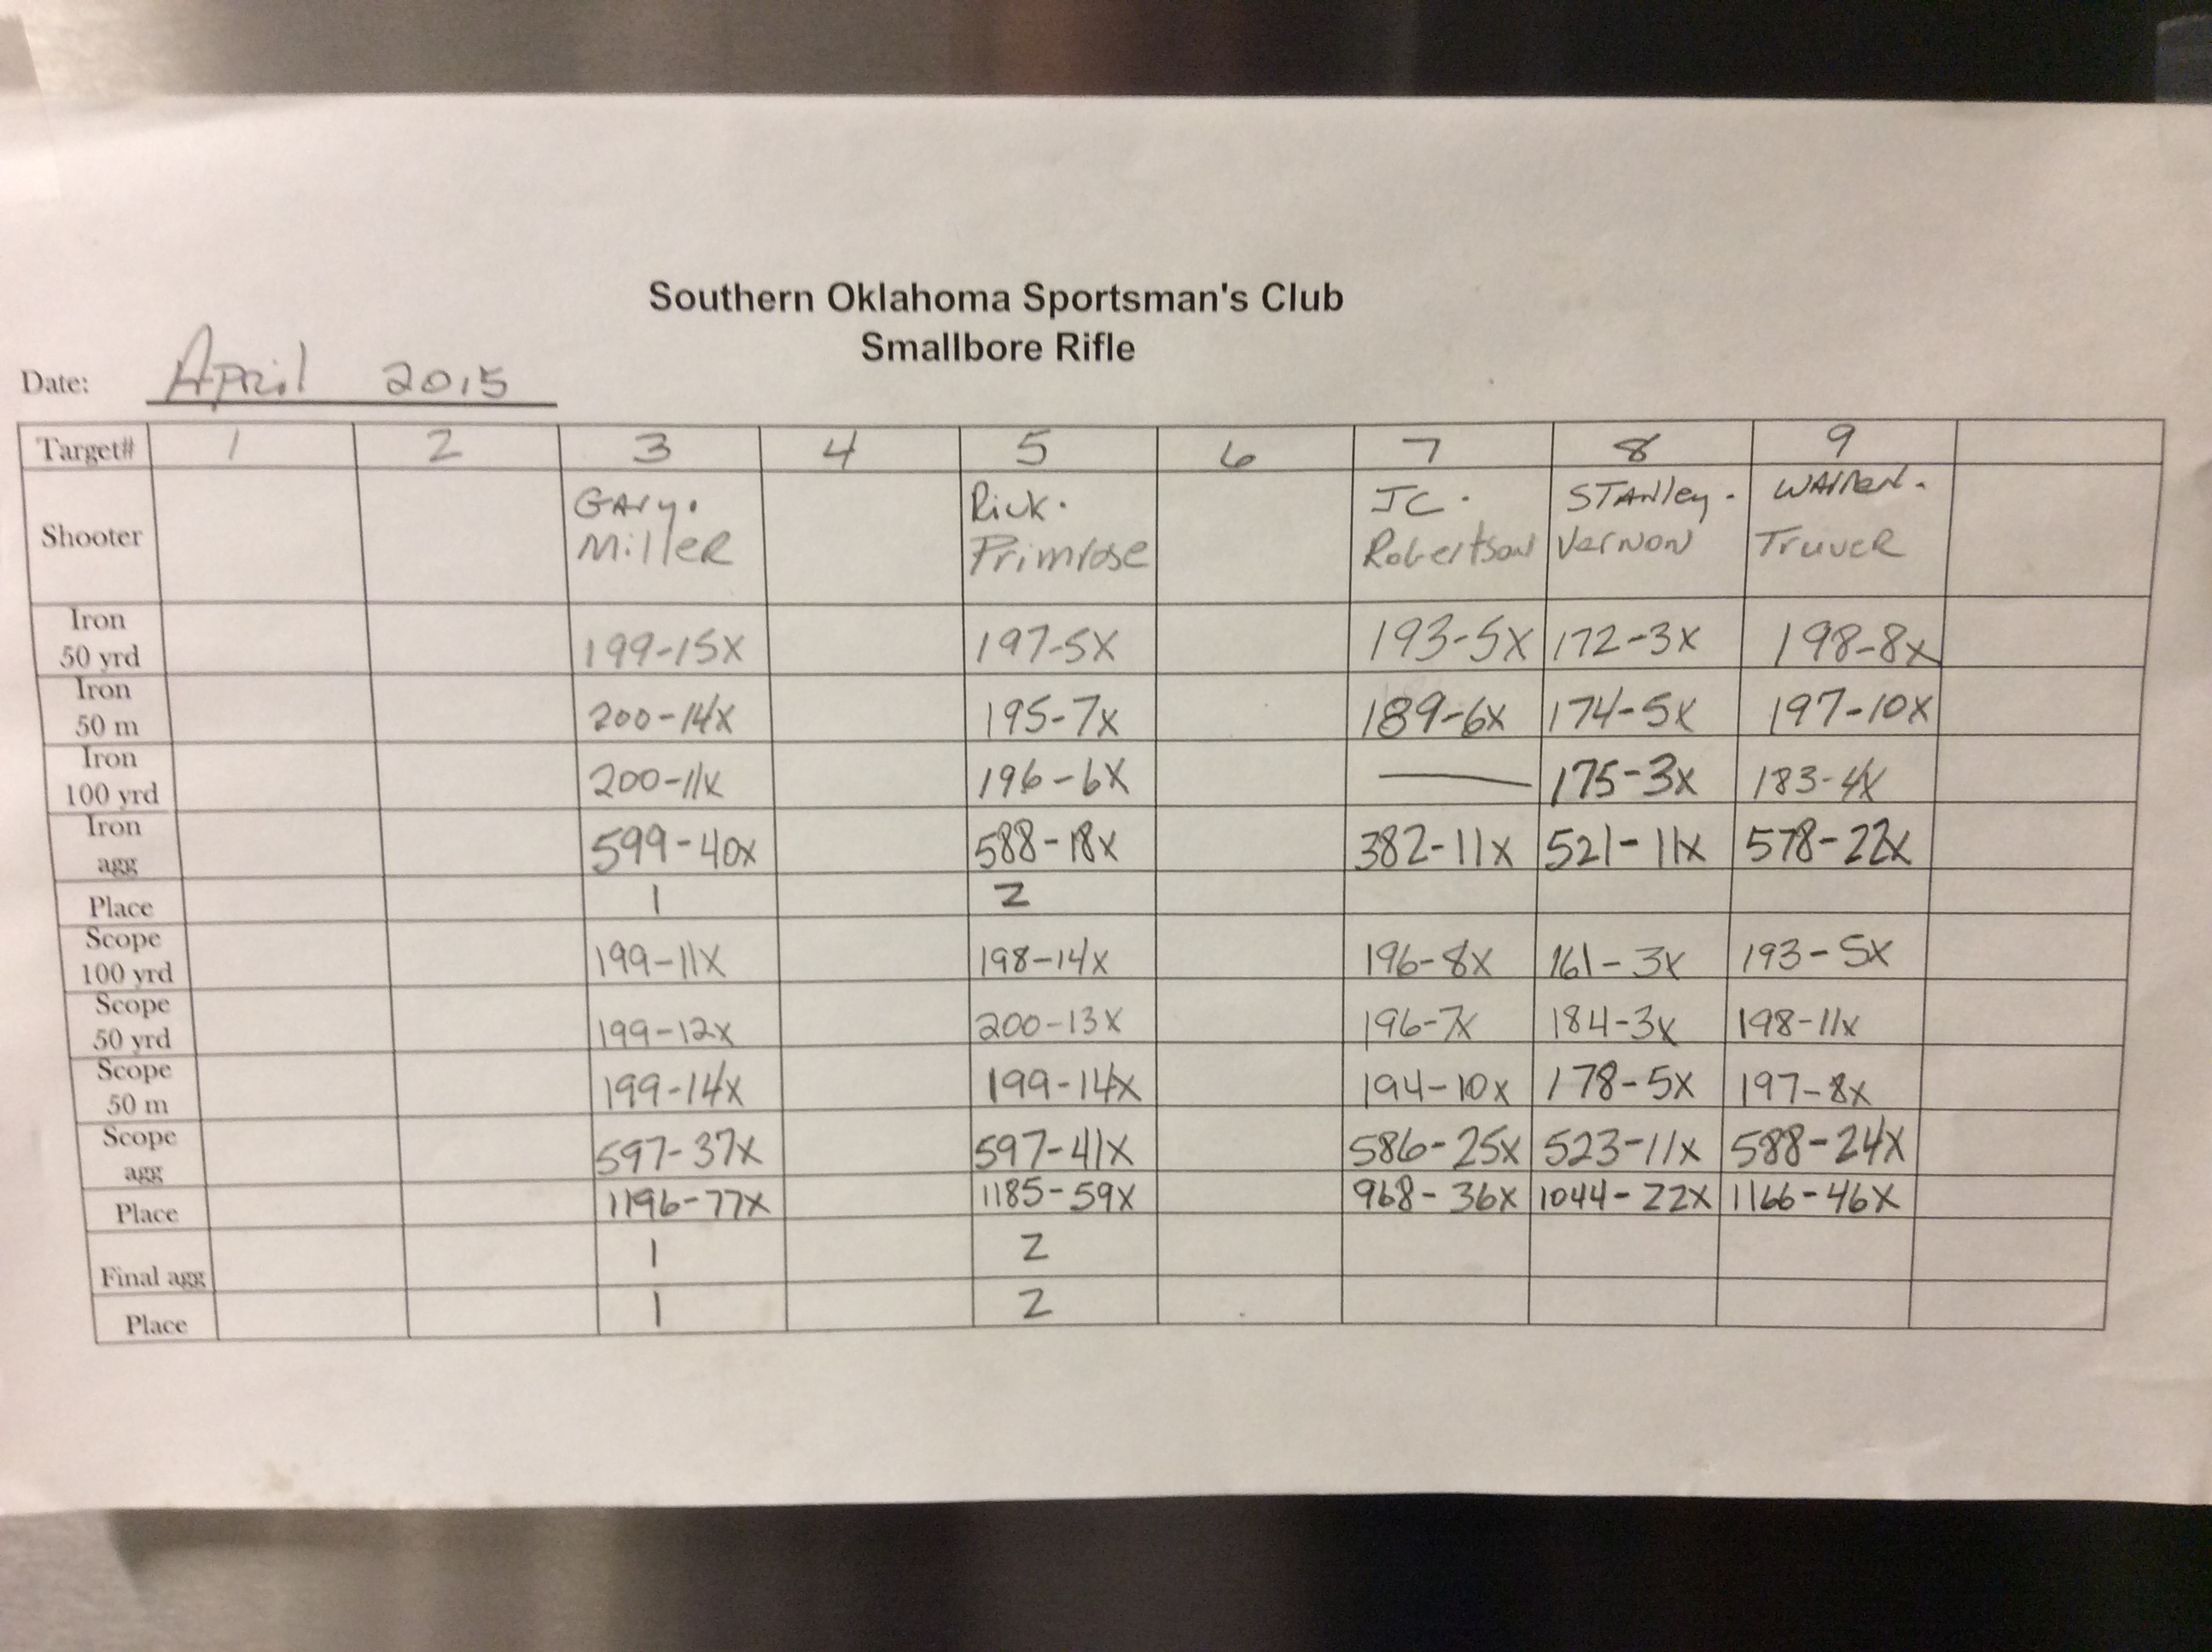 Southern Oklahoma Sportsman's Club
Smallbore Rifle
Date: April 2015
Target# 1 2 3 4 5 6 7 8 9
Shooter
Gary. Rick. JC. Stanley. Warren.
Miller Primrose Robertson Vernon Truver
Iron
50 yrd 199-15X 197-5X 193-5X 172-3X 198-8X
Iron
50 m 200-14X 195-7X 189-6X 174-5X 197-10X
Iron
100 yrd 200-11X 196-6X — 175-3X 183-4X
Iron
agg 599-40X 588-18X 382-11X 521-11X 578-22X
Place 1 2
Scope
100 yrd 199-11X 198-14X 196-8X 161-3X 193-5X
Scope
50 yrd 199-12X 200-13X 196-7X 184-3X 198-11X
Scope
50 m 199-14X 199-14X 194-10X 178-5X 197-8X
Scope
agg 597-37X 597-41X 586-25X 523-11X 588-24X
Place 1196-77X 1185-59X 968-36X 1044-22X 1166-46X
Final agg 1 2
Place 1 2